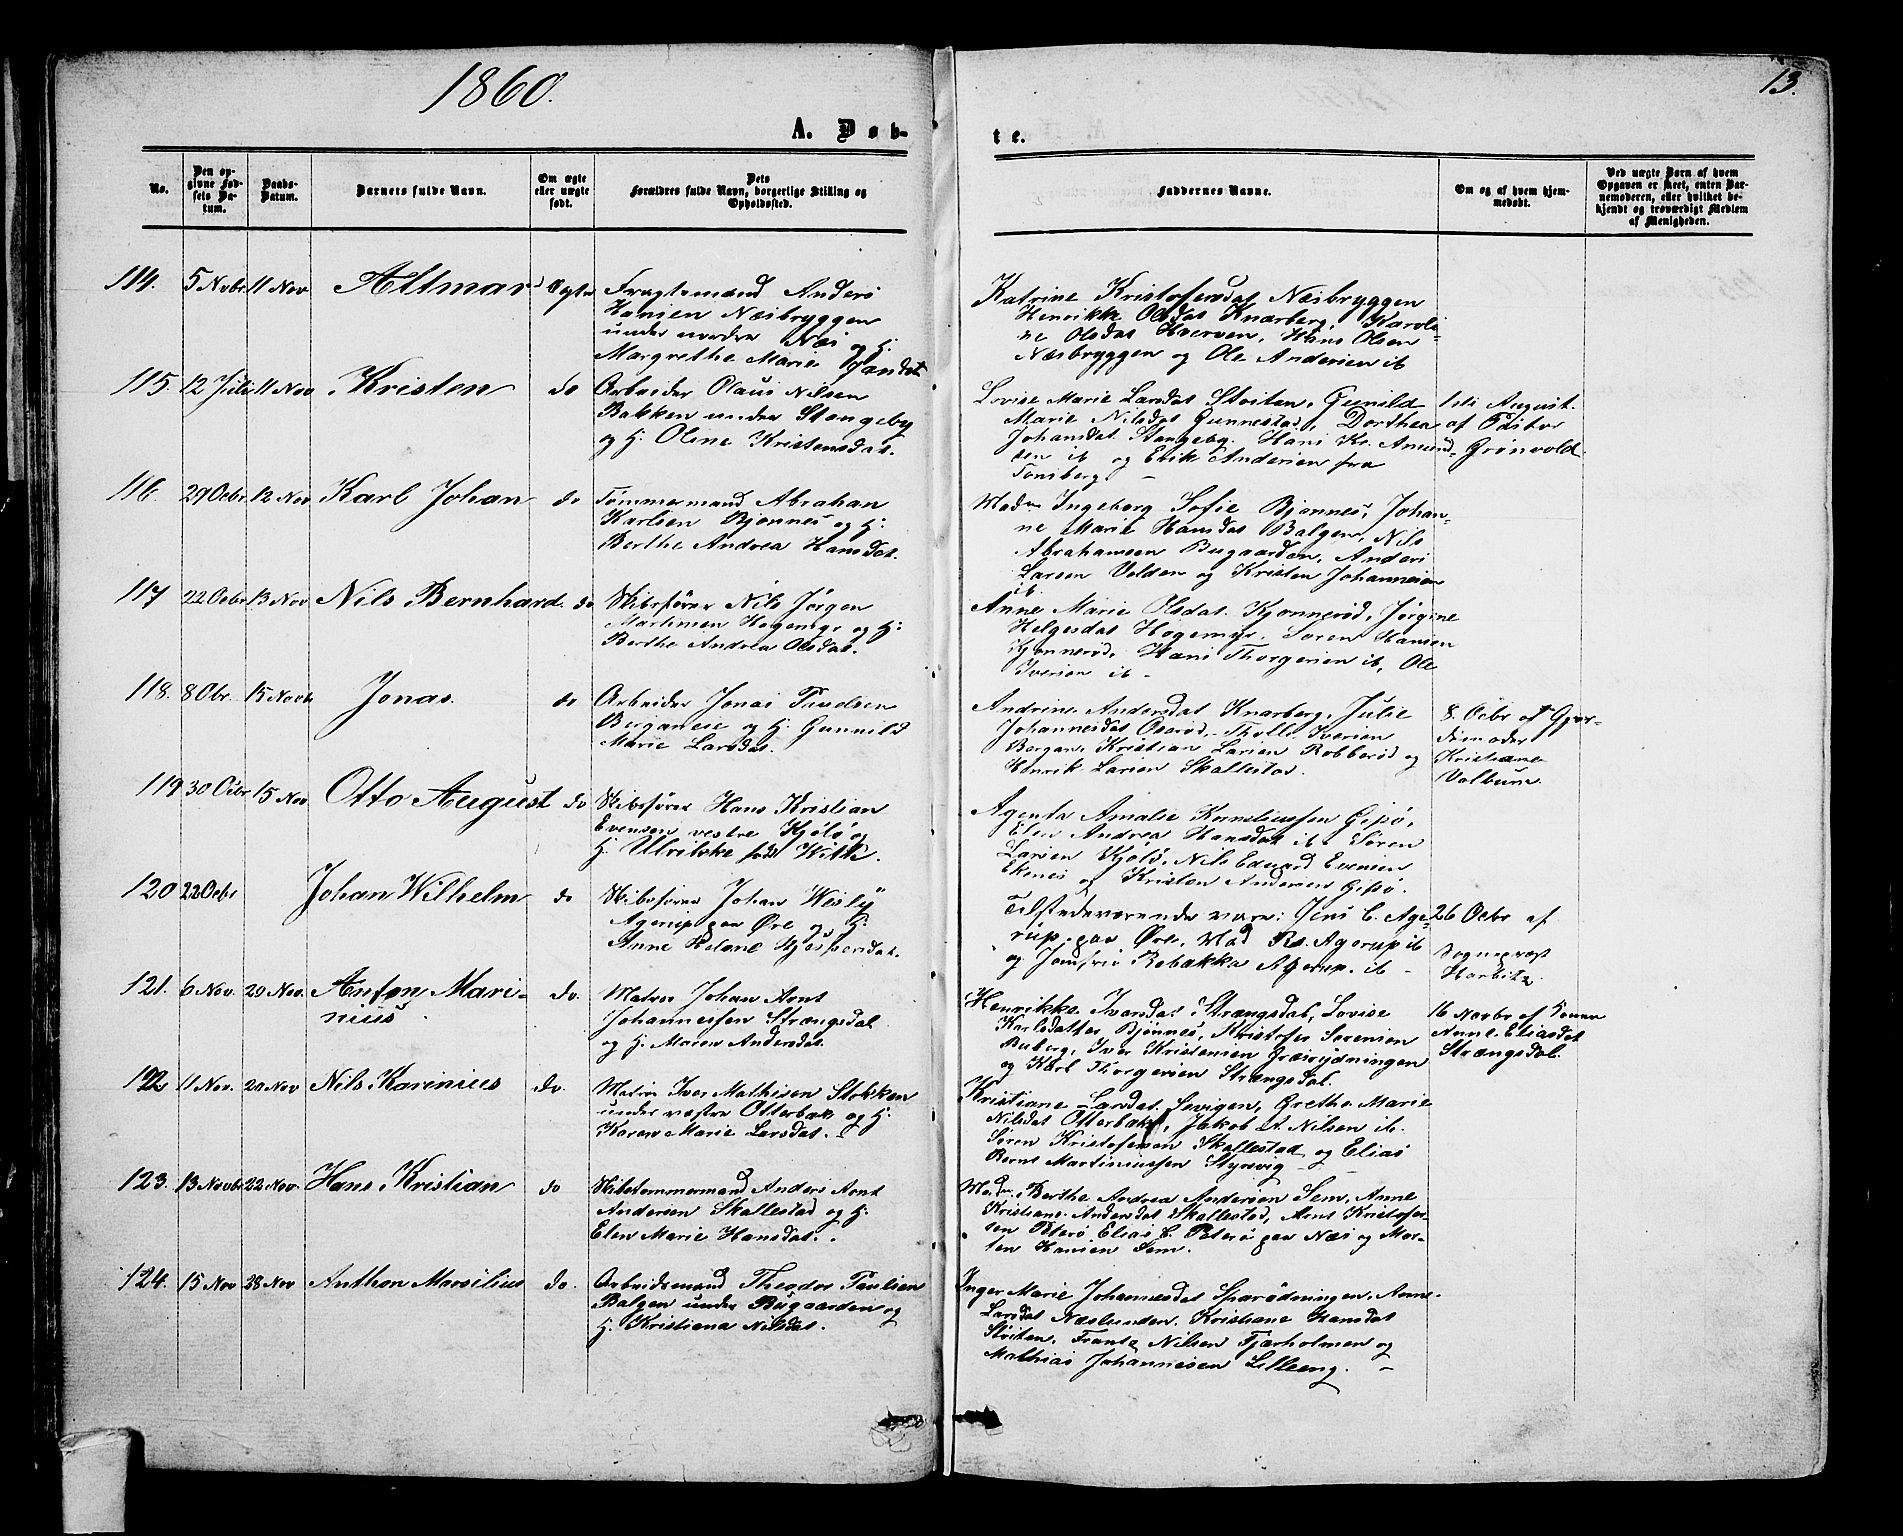 1860.
13.
A. Døb-
te.
No.
Den op-
givne Fød-
sels Da-
tum.
Daabs-
Datum.
Barnets fulde Navn.
Om ægte
eller uægte
født.
Dets
Forældres fulde Navn, borgerlige Stilling og
Opholdssted.
Faddernes Navne.
Om og af hvem hjem-
medøbt.
Ved uægte Børn af hvem
Opgaven er skeet, enten Bar-
nemoderen, eller hvilket be-
kjendt og troværdigt Medlem
af Menigheden.
114. 5 Novbr 11 Nov Altmar Ægte
Fragtemand Anders
Hansen Næsbryggen
under nordre Næs og H:
Margrethe Marie
Katrine Kristofersdat Næsbryggen
Henrikke Olsdat Knarberg, Karoli-
ne Olsdat Hverven, Hans Olsen
Næsbryggen og Ole Andersen ib
115. 12 Juli 11 Nov Kristen do
Arbeider Olaus Nilsen
Bakken under Stangeby
og H: Oline Kristensdat.
Lovise Marie Larsdat Støiten, Gunild
Marie Nilsdat Gunnestad, Dorthea
Johansdat Stangeby, Hans Kr. Amund-
sen ib og Erik Andersen fra
Tønsberg –
1ste August.
af Pastor
Grønvold
116. 29 Octbr 12 Nov Karl Johan do
Tømmermand Abraham
Karlsen Bjønnes og H:
Berthe Andrea Hansdat.
Madm Ingeborg Sofie Bjønnes, Johan-
ne Marie Hansdat Balgen, Nils
Abrahamsen Bugaarden, Anders
Larsen Volden og Kristen Johannesen
ib.
117 22 Octbr 13 Nov Nils Bernhard. do
Skibsfører Nils Jørgen
Martinsen Hogemyr og H:
Berthe Andrea Olsdat.
Anne Marie Olsdat Kjønnerød, Jørgine
Helgesdat Hogemyr, Søren Hansen
Kjønnerød, Hans Thorgersen ib, Ole
Iversen ib –
118. 8 Obr. 15 Novb Jonas. do
Arbeider Jonas
Bergan og H: Gunnild
Marie Larsdat.
Andrine Andersdat Knarberg, Julie
Johannesdat Oserød, Iversen
Bergan, Kristian Larsen Robberød og
Henrik Larsen Skallestad.
8. Octbr af Gjor-
demoder
Kristiane
119 30 Octbr 15 Nov Otto August do
Skibsfører Hans Kristian
Evensen vestre Kjølø og
H. Ulrikke født
Agenta Amalie Korneliussen Gipø,
Elen Andrea Hansdat ib Søren
Larsen Kjølø, Nils Edvard Evensen
Ekenes og Kristen Andersen Gipø.
120 22 Octbr Johan Wilhelm do
Skibsfører Johan Wesly
Agerup paa Øre og H:
Anne Helene Kjespersdat.
Tilstedeværende vare: Jens C. Age-
rup paa Øre, Mad Rs. Agerup ib
og Jomfru Rebækka Agerup. ib –
26 Octbr af
Sogneprest
Harbitz.
121. 6 Nov. 20 Nov. Anton Mari-
nius. do.
Matros Johan Arnt
Johannessen Strængsdal
og H: Maren Andersdat.
Henrikke Ivarsdat Strængsdal, Lovise
Karlsdatter Bjønnes, Kristofer Sørensen
Buberg, Iver Kristensen Grærydningen
og Karl Thorgersen Strængsdal.
16 Novbr af Konen
Anne Eliasdat
Strængsdal.
122 11 Nov. 20 Nov Nils Karinius do.
Matros Iver Mathisen Stokken
under vestre Otterbæk og H:
Karen Marie Larsdat.
Kristiane Larsdat Grethe Marie
Nilsdat Otterbæk, Jakob A. Nilsen ib.
Søren Kristofersen Skallestad og Elias
Bernt Martiniussen Styrsvig –
123. 13 Novbr 22 Nov. Hans Kristian do
Skibstømmermand Anders Arnt
Andersen Skallestad og H:
Elen Marie Hansdat.
Madm. Berthe Andrea Andersen Sem, Anne
Kristiane Andersdat Skallestad, Arnt Kristofer-
sen Peterø Elias C. Peterø paa Næs og Mor-
ten Hansen Sem.
124. 15 Nov 28 Nov Anthon Marsilius do.
Arbeidsmand Theodor Paulsen
Balgen under Bugaarden og
H. Kristiana Nilsdat.
Inger Marie Johannesdat Sparødningen, Anne
Larsdat Næslunden. Kristiane Hansdat
Støiten, Frants Nilsen Fjærholmen og
Mathias Johannesen Lilleeng. –